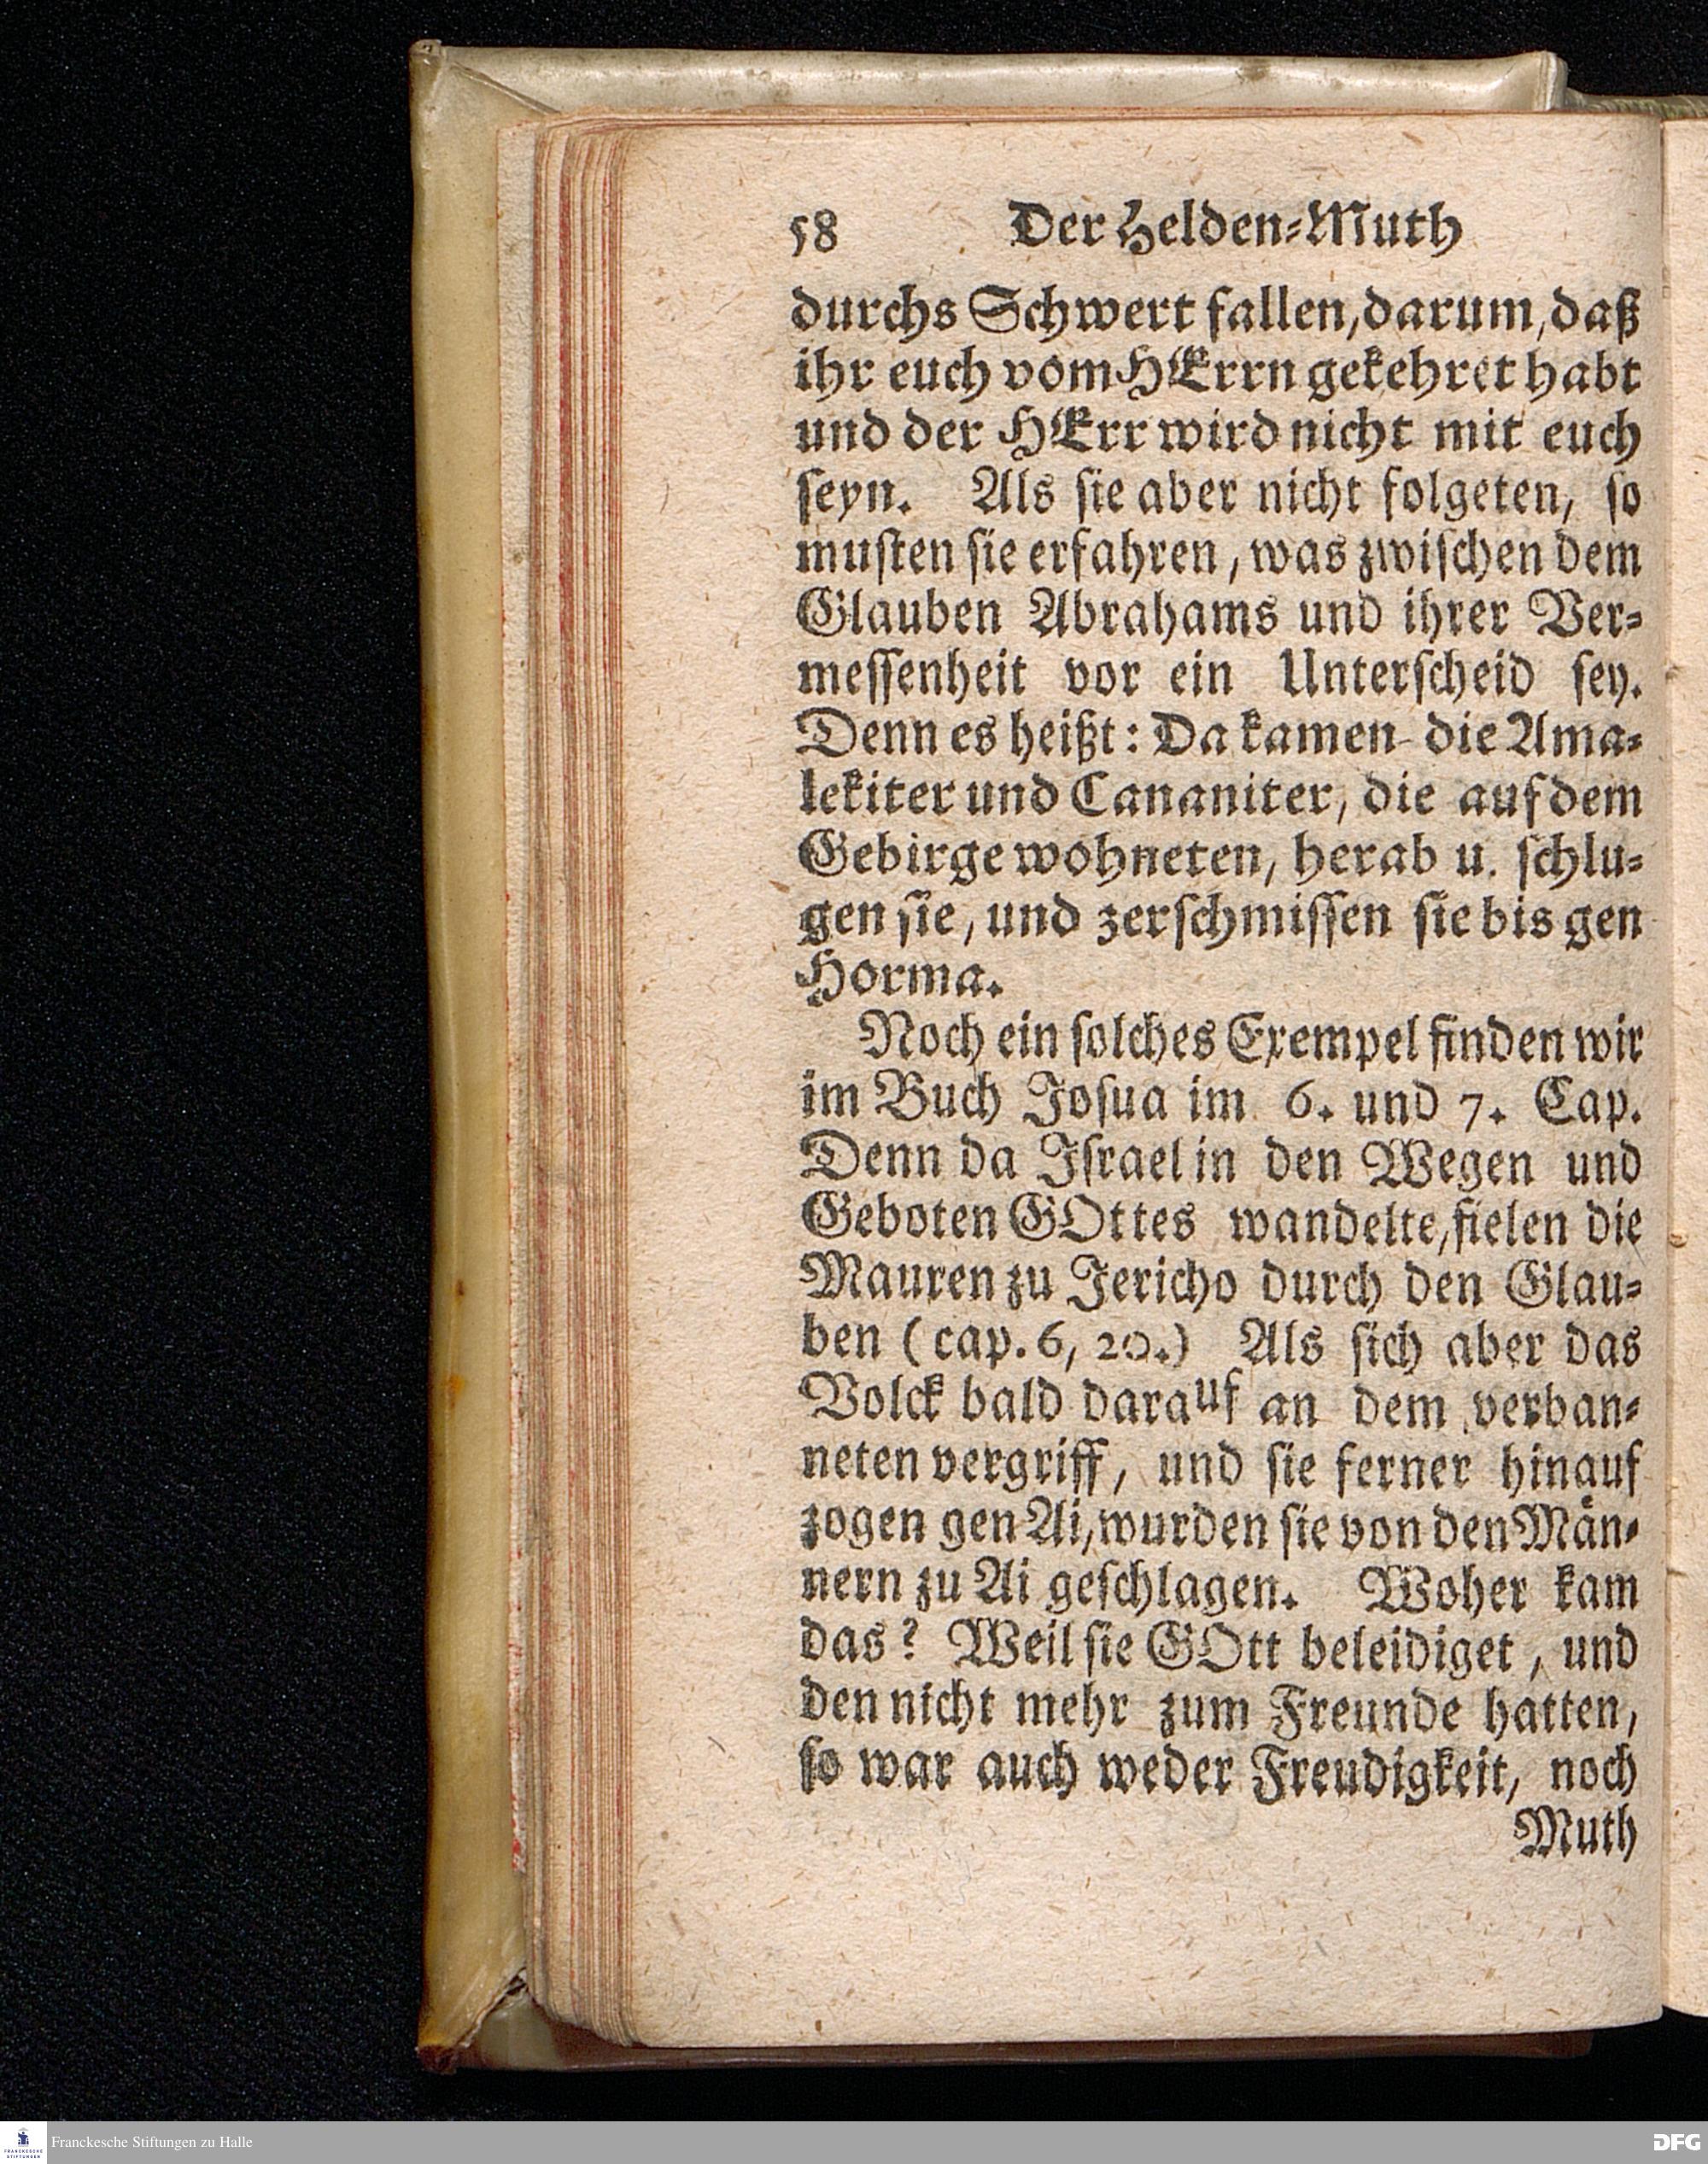 58 Der Helden-Muth
durchs Schwert fallen, darum, daß
ihr euch vom HErrn gekehret habt
und der HErr wird nicht mit euch
seyn. Als sie aber nicht folgeten, so
musten sie erfahren, was zwischen dem
Glauben Abrahams und ihrer Ver-
messenheit vor ein Unterscheid sey.
Denn es heißt: Da kamen die Ama-
lekiter und Cananiter, die auf dem
Gebirge wohneten, herab u. schlu-
gen sie, und zerschmissen sie bis gen
Horma.
Noch ein solches Exempel finden wir
im Buch Josua im 6. und 7. Cap.
Denn da Israel in den Wegen und
Geboten GOttes wandelte, fielen die
Mauren zu Jericho durch den Glau-
ben (cap. 6, 20.) Als sich aber das
Volck bald darauf an dem verban-
neten vergriff, und sie ferner hinauf
zogen gen Ai, wurden sie von den Män-
nern zu Ai geschlagen. Woher kam
das? Weil sie GOtt beleidiget, und
den nicht mehr zum Freunde hatten,
so war auch weder Freudigkeit, noch
Muth
FRANCKESCHE
STIFTUNGEN
Franckesche Stiftungen zu Halle
DFG